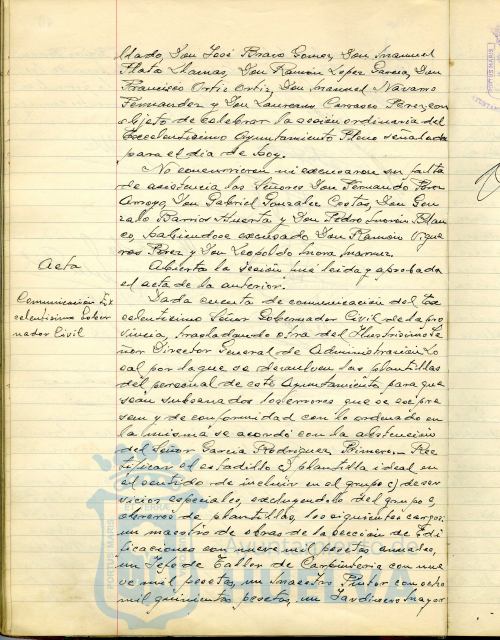 llado, Don José Bravo Gomez, Don Manuel
Plata Llamas, Don Ramón Lopez García, Don
Francisco Ortiz Ortiz, Don Manuel Navarro
Fernandez y Don Laureano Carrasco Perez, con
objeto de celebrar la sesión ordinaria del
Excelentisimo Ayuntamiento Pleno señalada
para el dia de hoy.
No concurrieron ni excusaron su falta
de asistencia los Señores Don Fernando
Arroyo, Don Gabriel Gonzalez Costas, Don Gon
zalo Barrios Huerta y Don Pedro Morón Blan
co, habiendose excusado Don Ramón Vigue
ras Pérez y Don Leopoldo Mora
Acta
Abierta la sesión fue leida y aprobada
el acta de la anterior.
Comunicación Ex
celentísimo Gober
nador Civil
Dada cuenta de comunicación del Ex
celentisimo Señor Gobernador Civil de la pro
vincia, trasladando otra del Ilustrisimo Se
ñor Director General de Administración Lo
cal por la que se devuelven las plantillas
del personal de este Ayuntamiento para que
sean subsanados los errores que se expre
san y de conformidad con lo ordenado en
la misma se acordó con la abstención
del Señor García Rodriguez, Primero.- Rec
tificar el estadillo c) plantilla ideal en
el sentido de incluir en el grupo c) de ser
vicios especiales, excluyendolo del grupo
obreros de plantillas, los siguientes cargos:
un maestro de obras de la sección de Edi
ficaciones con nueve mil pesetas anuales,
un Jefe de Taller de Carpinteria con nue
ve mil pesetas, un Maestro Pintor con ocho
mil quinientas pesetas, un Jardinero Mayor
PORTUS MARIS
Ayuntamiento de
HUELVA